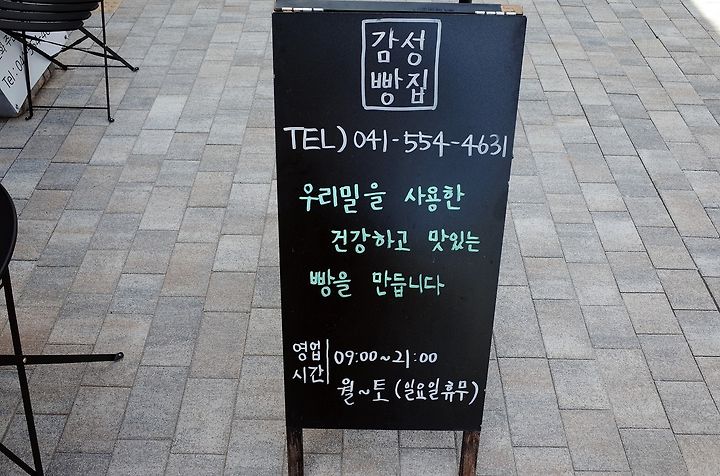 감성
빵집
TEL) 041-554-4631
우리밀을 사용한
건강하고 맛있는
빵을 만듭니다
영업
시간
09:00~21:00
월~토 (일요일 휴무)